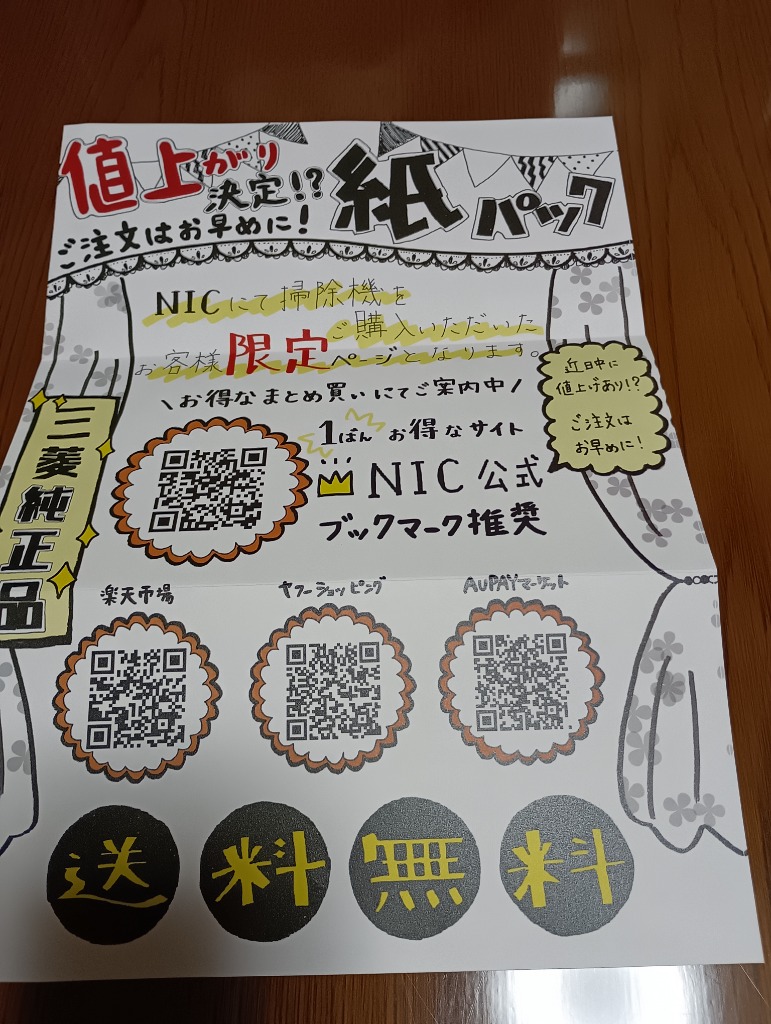 値上がり
決定!?
ご注文はお早めに!
紙パック
NICにて掃除機を
ご購入いただいた
お客様限定ページとなります。
\お得なまとめ買いにてご案内中/
近日中に
値上げあり!?
ご注文は
お早めに!
三菱純正品
1ばんお得なサイト
NIC公式
ブックマーク推奨
楽天市場
ヤフーショッピング
AUPAYマーケット
送料無料